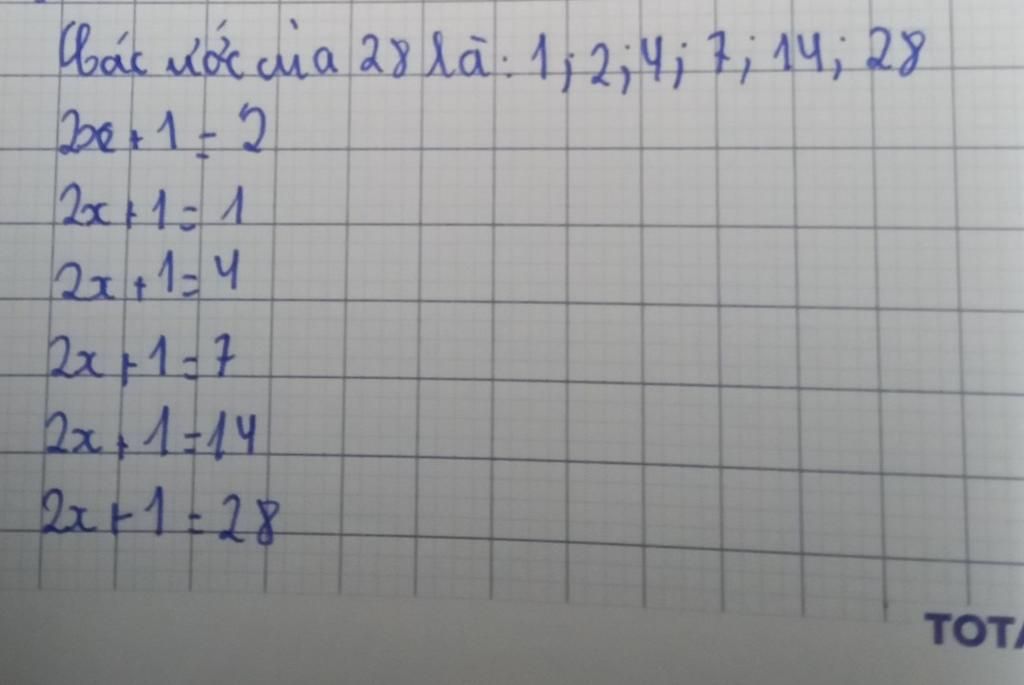 Các ước của 28 là: 1; 2; 4; 7; 14; 28
2x + 1 = 2
2x + 1 = 1
2x + 1 = 4
2x + 1 = 7
2x + 1 = 14
2x + 1 = 28
TOTA